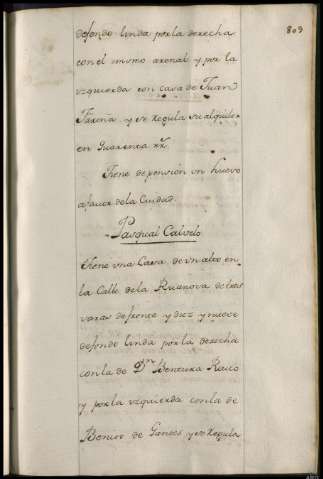 809
defondo linda por la derecha
con el mismo arenal y por la
izquierda con casa de Juan
Fariña y se regula su alquiler
en Quarenta rr.
Tiene de pension un huevo
a favor de la Ciudad.
Pasqual Calvelo
tiene una Casa de un alto en
la Calle de la Ruanova de tres
varas de frente y diez y nueve
de fondo linda por la derecha
con la de Dn Bentura
y por la izquierda con la de
Benito de Gandos y se regula